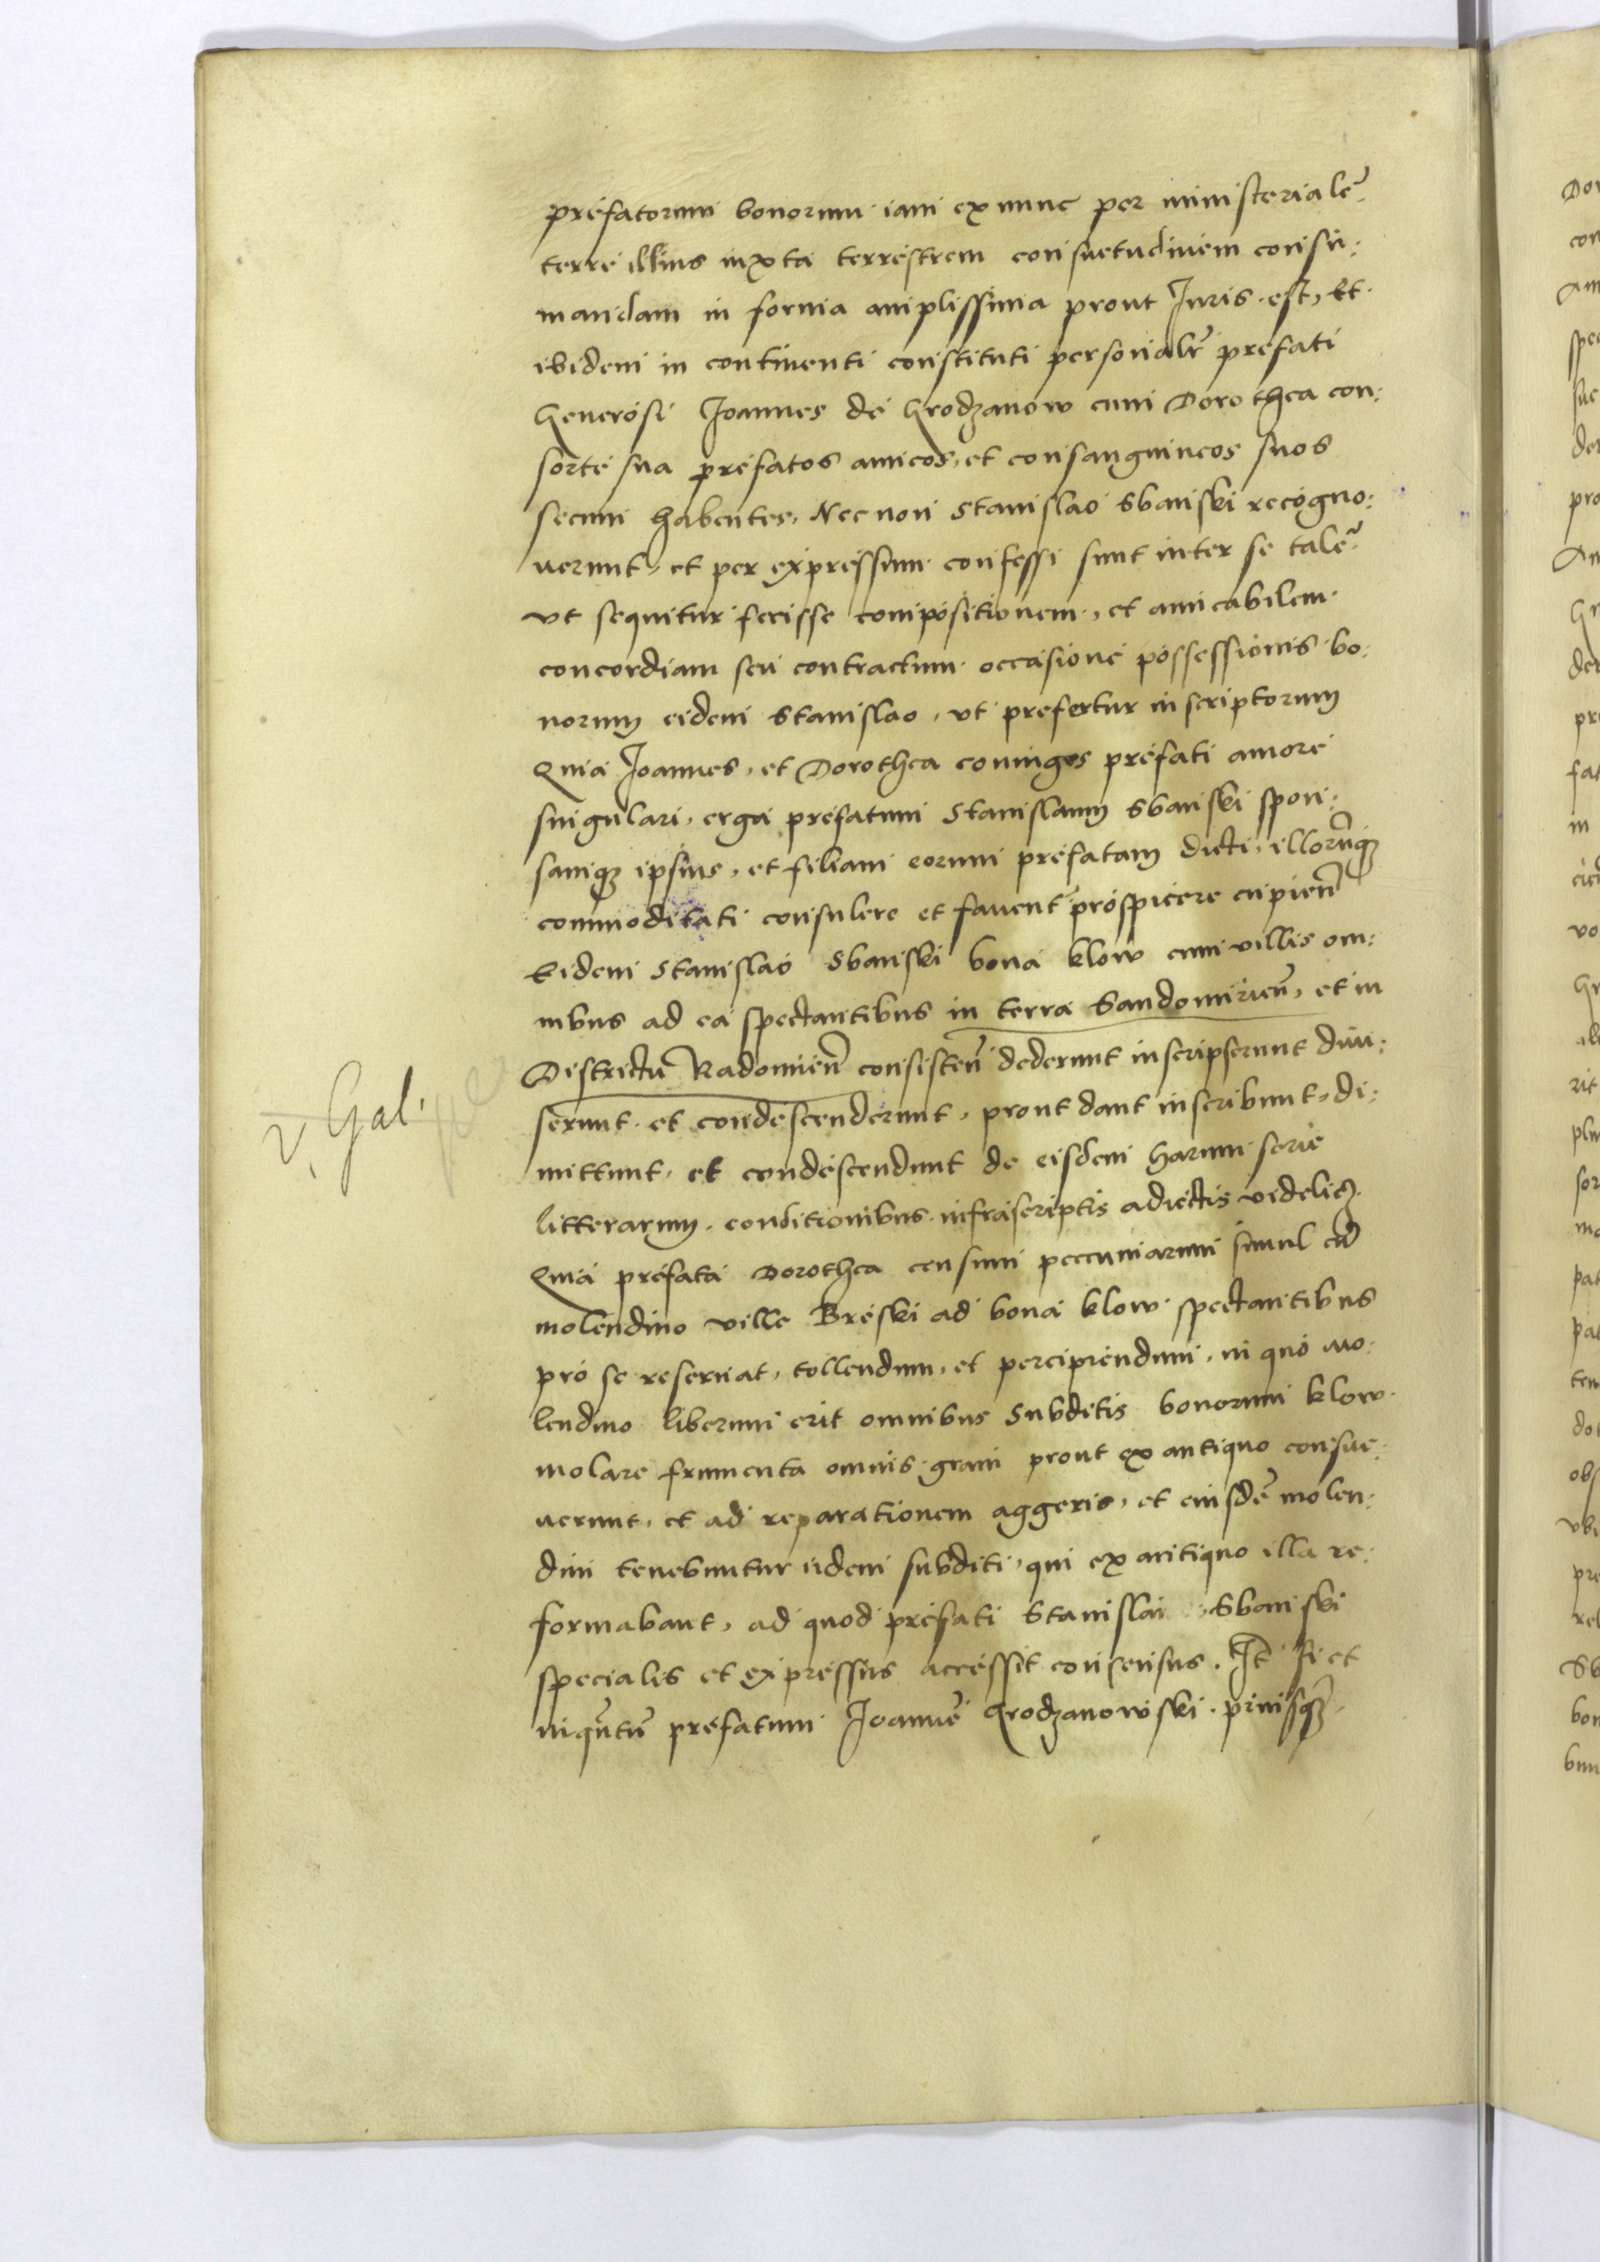 prefatorum bonorum iam ex nunc per ministerialē
terre illius iuxta terrestrem consuetudinem consu:
mandam in forma amplissima prout Iuris est, Et
ibidem in continenti constituti personalr̃ prefati
Generosi Joannes de Grodzanow cum Dorothea con:
sorte sua prefatos amicos, et consanguineos suos
secum habentes, Nec non Stanislao Sbanski recogno:
uerunt, et per expressum confessi sunt inter se talē
vt sequitur fecisse compositionem, et amicabilem
concordiam seu contractum occasione possessionis bo:
norum eidem Stanislao, vt prefertur inscriptorum
Quia Joannes, et Dorothea coniuges prefati amore
singulari, erga prefatum Stanislaum Sbanski spon:
samq3 ipsius, et filiam eorum prefatam dicti, illorūq3
commoditati consulere et fauent prospicere cupien̄
Eidem Stanislao Sbanski bona klow cum villis om:
nibus ad ea spectantibus in terra Sandomirien̄, et in
Districtu Radomien̄ consisten̄ dederunt inscripserunt dimi:
serunt et condescenderunt, prout dant inscribunt, di:
mittunt, et condescendunt de eisdem harum serie
litterarum, conditionibus infrascriptis adiectis videlic3
Quia prefata Dorothea censum pecuniarum simul cū
molendino ville Breski ad bona klow spectantibus
pro se reseruat, tollendum, et percipiendum, in quo mo:
lendino liberum erit omnibus Subditis bonorum klow
molare frumenta omnis grani prout ex antiquo consue:
uerunt, et ad reparationem aggeris, et eiusdē molen:
dini tenebuntur iidem subditi, qui ex antiquo illa re:
formabant, ad quod prefati Stanislai Sbanski
specialis et expressus accessit consensus. Itē si et
inquantū prefatum Joannē Grodzanowski priusq3
v. Gal.